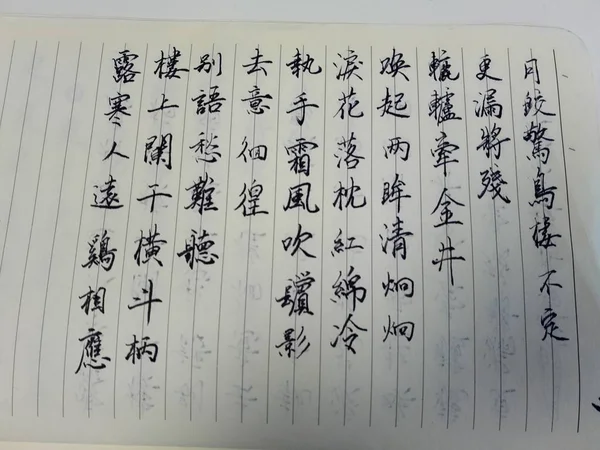 月皎驚烏棲不定
更漏將殘
轆轤牽金井
唤起两眸清炯炯
淚花落枕紅綿冷
執手霜風吹鬢影
去意徊徨
别語愁難聽
樓上闌干橫斗柄
露寒人遠鷄相應